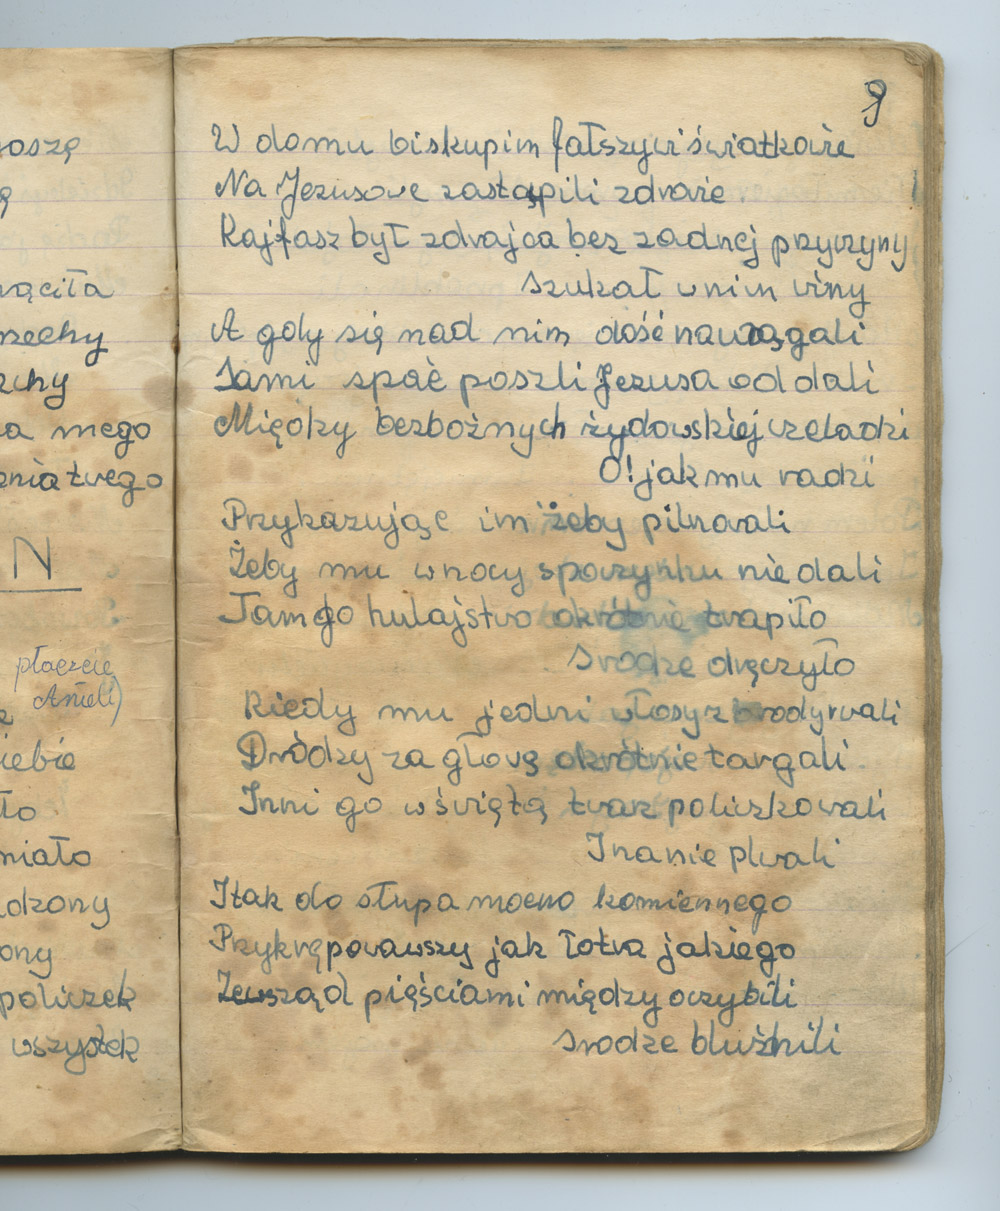 9
W domu biskupim fałszywi świadkowie
Na Jezusowe zastąpili zdrowie
Kajfasz był zdrajca bez zadnej przyczyny
szukał w nim winy
A gdy się nad nim dość naurągali
Sami spać poszli Jezusa oddali
Między bezbożnych żydowskiej czeladzi
O! jak mu radzi
Przykazując im żeby pilnowali
Żeby mu w nocy spoczynku nie dali
Tam go hulajstwo okrótnie trapiło
srodze dręczyło
Kiedy mu jedni włosy z brody rwali
Dródzy za głowę okrótnie targali
Inni go w świętą twarz policzkowali
I na nie plwali
I tak do słupa mocno kamiennego
Przykrępowawszy jak łotra jakiego
Zewsząd pięściami między oczy bili
srodze bluźnili
noszę
ę
rąciła
rzechy
echy
a mego
enia twego
N
płaczcie
Anieli)
iebie
ło
miało
dzony
ony
policzek
wszystek